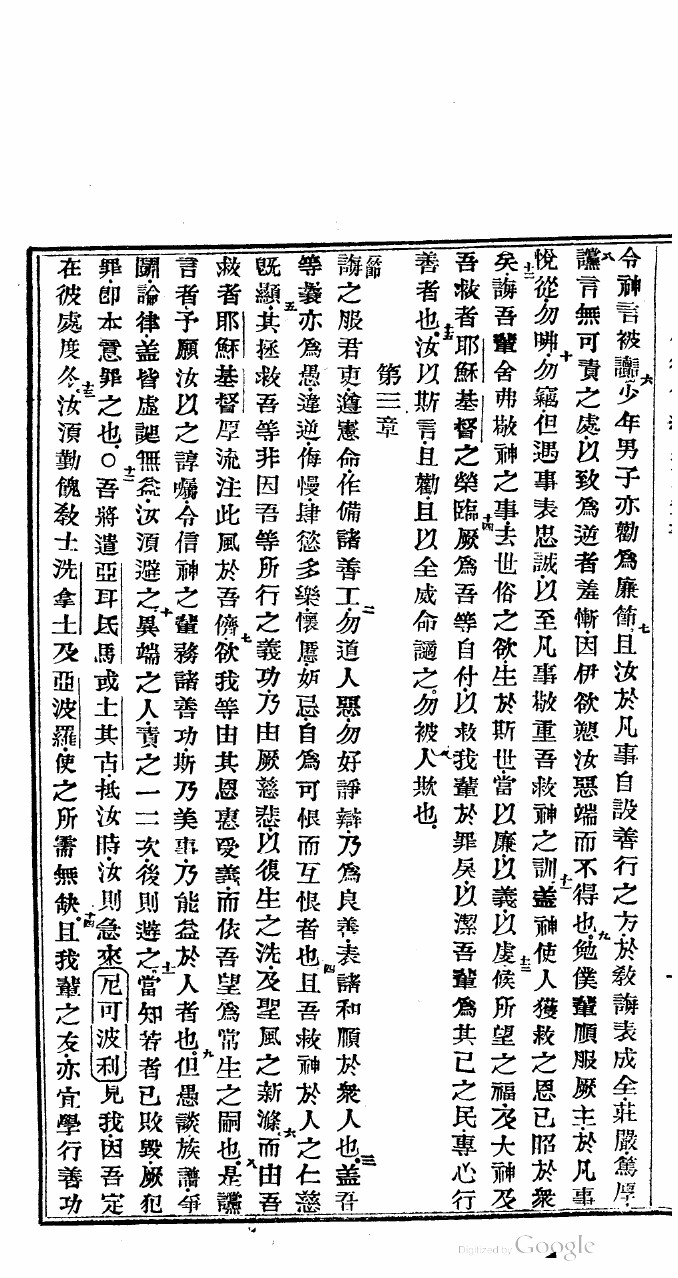 令神言被讟六少年男子亦勸爲廉節七且汝於凡事自設善行之方於敎誨表成全莊嚴篤厚
八讜言無可責之處以致爲逆者羞慚因伊欲愬汝惡端而不得也九勉僕輩順服厥主於凡事
悅從勿咈十勿竊但遇事表忠誠以至凡事敬重吾救神之訓十一蓋神使人獲救之恩已昭於衆
十二矣誨吾輩舍弗敬神之事去世俗之欲生於斯世當以廉以義以虔十三候所望之福及大神及
吾救者耶穌基督之榮臨十四厥爲吾等自付以救我輩於罪戾以潔吾輩爲其己之民專心行
善者也十五汝以斯言且勸且以全威命讁之勿被人欺也
第三章
一節誨之服君吏遵憲命作備諸善工二勿道人惡勿好諍辯乃爲良善表諸和順於衆人也三蓋吾
等曩亦爲愚違逆侮慢肆慾多樂懷慝妬忌自爲可恨而互恨者也四且吾救神於人之仁慈
旣顯五其拯救吾等非因吾等所行之義功乃由厥慈悲以復生之洗及聖風之新滌六而由吾
救者耶穌基督厚流注此風於吾儕七欲我等由其恩寵受義而依吾望爲常生之嗣也八是讜
言者予願汝以之諄囑令信神之輩務諸善功斯乃美事乃能益於人者也九但愚談族譜爭
鬭論律蓋皆虛誕無益汝須避之十異端之人責之一二次後則避之十一當知若者已敗毀厥犯
罪卽本意罪之也○十二吾將遣亞耳氐馬或土其古抵汝時汝則急來尼可波利見我因吾定
在彼處度冬十三汝須勤餽敎士洗拿士及亞波羅使之所需無缺十四且我輩之友亦宜學行善功
Digitized by Google